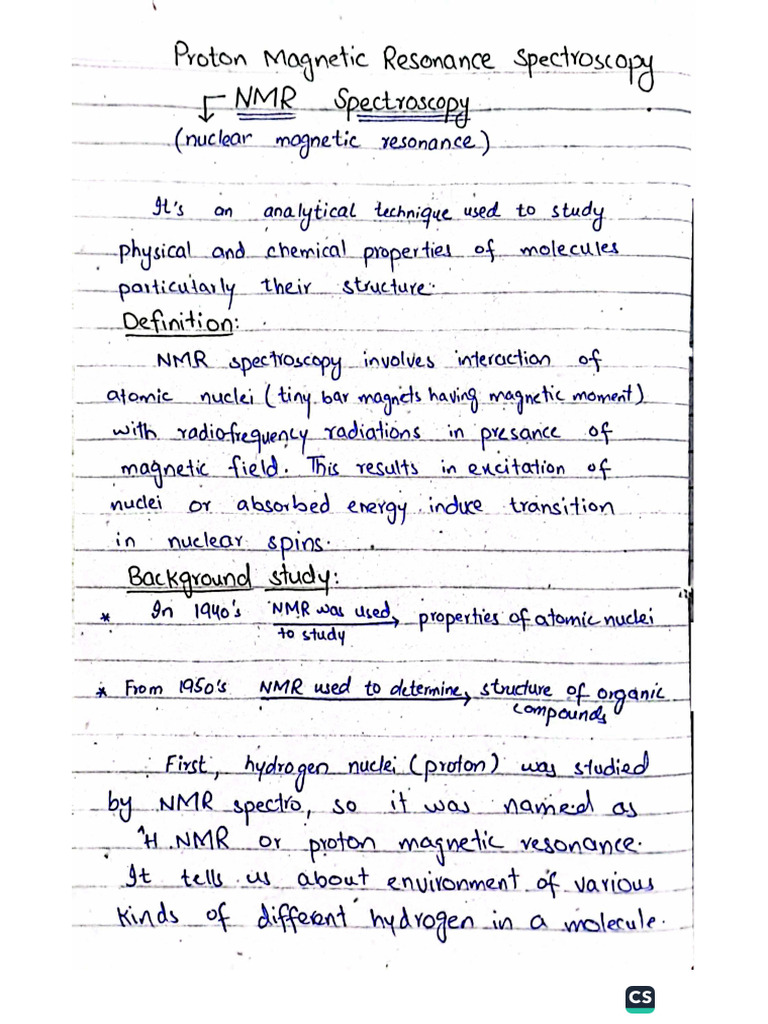 Proton Magnetic Resonance Spectroscopy
NMR Spectroscopy
(nuclear magnetic resonance)
It's an analytical technique used to study
physical and chemical properties of molecules
particularly their structure.
Definition:
NMR spectroscopy involves interaction of
atomic nuclei (tiny bar magnets having magnetic moment)
with radiofrequency radiations in presance of
magnetic field. This results in excitation of
nuclei or absorbed energy induce transition
in nuclear spins.
Background study:
* In 1940's NMR was used to study → properties of atomic nuclei
* From 1950's NMR used to determine → structure of organic
compounds
First, hydrogen nuclei (proton) was studied
by NMR spectro, so it was named as
¹H NMR or proton magnetic resonance.
It tells us about environment of various
kinds of different hydrogen in a molecule.
CS